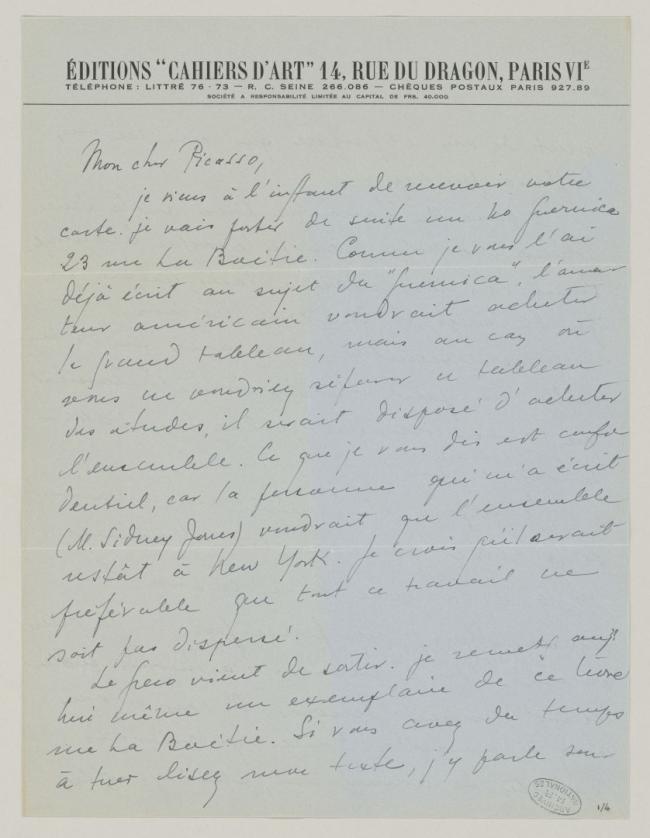 ÉDITIONS "CAHIERS D'ART" 14, RUE DU DRAGON, PARIS VIE
TÉLÉPHONE : LITTRÉ 76 - 73 — R. C. SEINE 266.086 — CHÈQUES POSTAUX PARIS 927.89
SOCIÉTÉ A RESPONSABILITÉ LIMITÉE AU CAPITAL DE FRS. 40.000
Mon cher Picasso,
je viens à l'instant de recevoir votre
carte. je vais porter de suite un no Guernica
23 rue La Boëtie. Comme je vous l'ai
déjà écrit au sujet du "Guernica", l'ama-
teur américain voudrait acheter
le grand tableau, mais au cas où
vous ne voudriez séparer ce tableau
des études, il serait disposé d'acheter
l'ensemble. Ce que je vous dis est confi-
dentiel, car la personne qui m'a écrit
(M. Sidney Janis) voudrait que l'ensemble
restât à New York. Je crois qu'il serait
préférable que tout ce travail ne
soit pas dispersé.
Le Greco vient de sortir. je remets auji
hui même un exemplaire de ce livre
rue La Boëtie. Si vous avez du temps
à tuer lisez mon texte, j'y parle sur-
ARCHIVES
NATIONALES
1/4